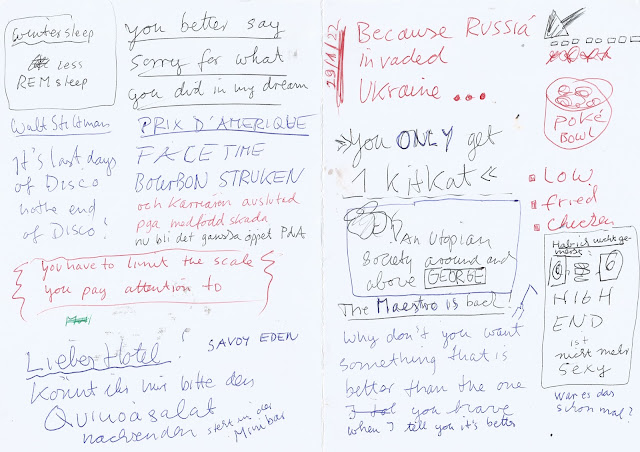 winter sleep
less
REM sleep
you better say
sorry for what
you did in my dream
PRIX D'AMERIQUE
It's last days
of Disco
not the end
of Disco!
FACETIME
BOURBON STRUKEN
och karriären avslutad
pga medfödd skada
nu bli det ganska öppet
you have to limit the scale
you pay attention to
Lieber Hotel
SAVOY EDEN
Könnt ihr mir bitte den
Quinoasalat
nachsenden
steht in der
Minibar
29/1/22
Because RUSSIA
invaded
Ukraine ...
»you ONLY get
1 KitKat«
An Utopian
Society around and
above GEORGE
The Maestro is back!
Why don't you want
something that is
better than the one
you have
when I tell you it's better
POKÉ
BOWL
LOW
fried
Chicken
6
6
HIGH
END
ist
nicht mehr
sexy
war es das
schon mal?